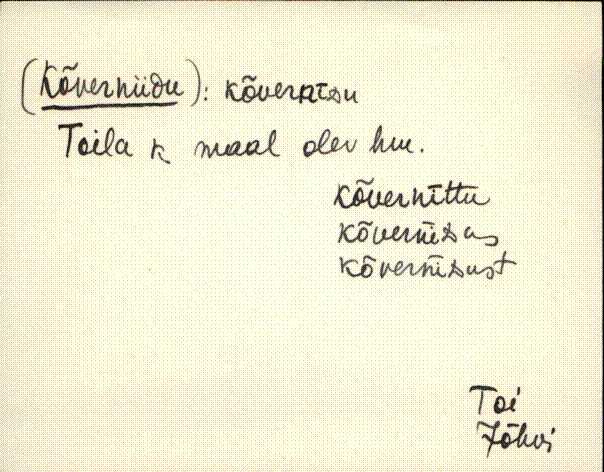 (Kõverniidu): kõvernīsu
Toila k maal olev hm.
kõvernīttu
kõvernīsus
kõvernīsust
Toi
Jõhvi